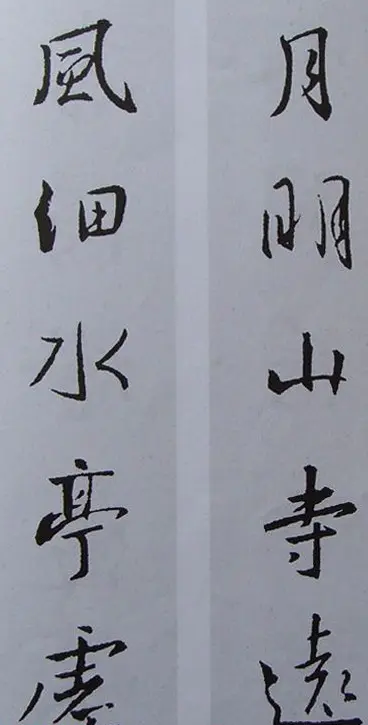 月明山寺遠
風細水亭虛